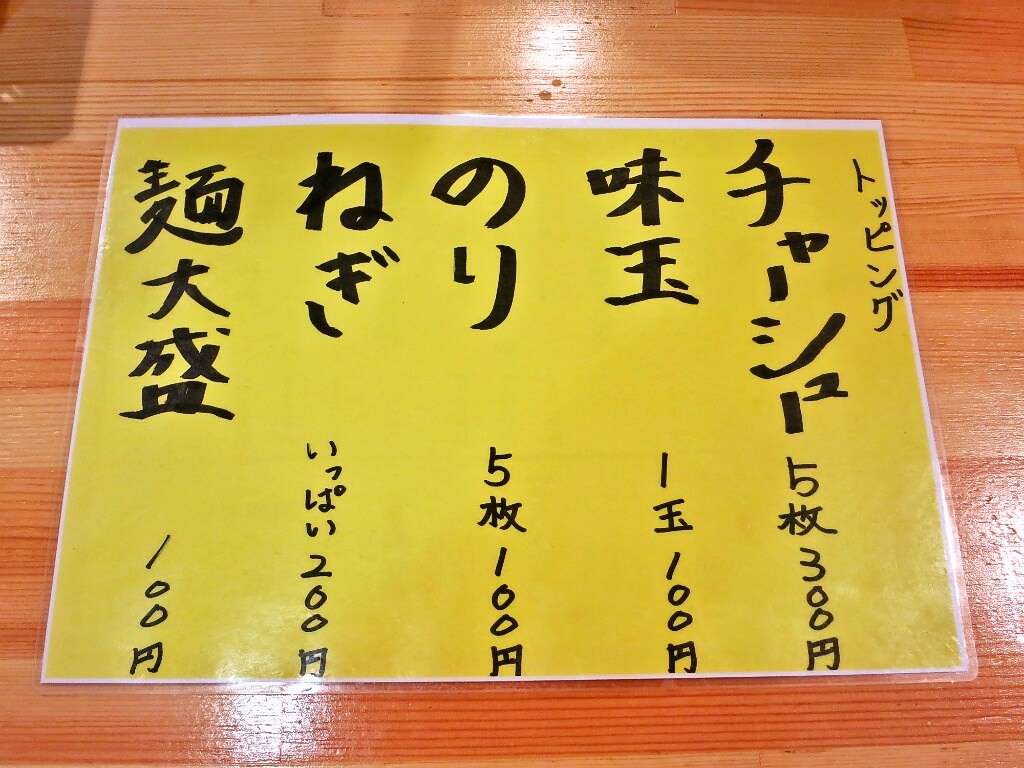 トッピング
チャーシュー 5枚300円
味玉 1玉100円
のり 5枚100円
ねぎ いっぱい200円
麺大盛 100円